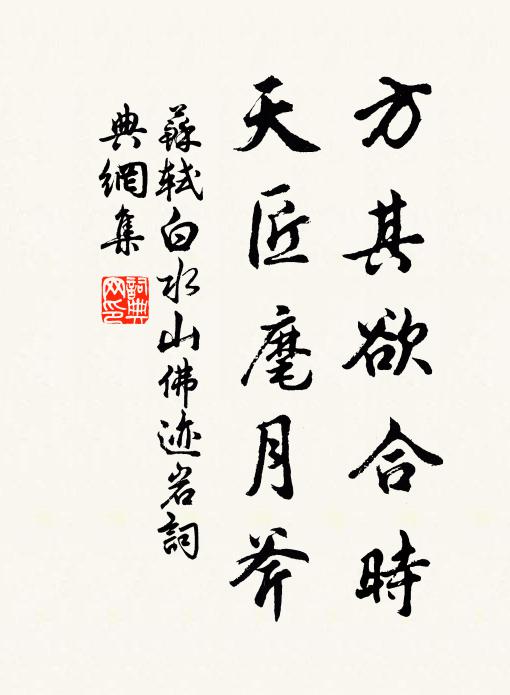 方其欲合時
天匠麾月斧
蘇軾白水山佛迹岩詞
典網集
詞典
网印